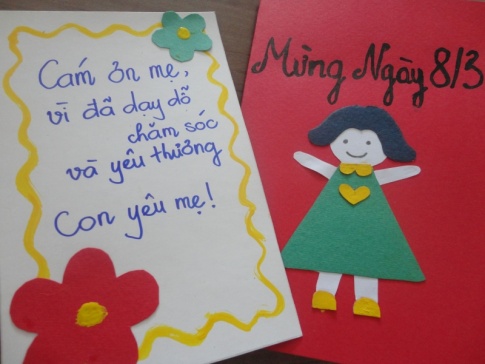 Cám ơn mẹ,
vì đã dạy dỗ
chăm sóc
và yêu thương
Con yêu mẹ!
Mừng Ngày 8/3